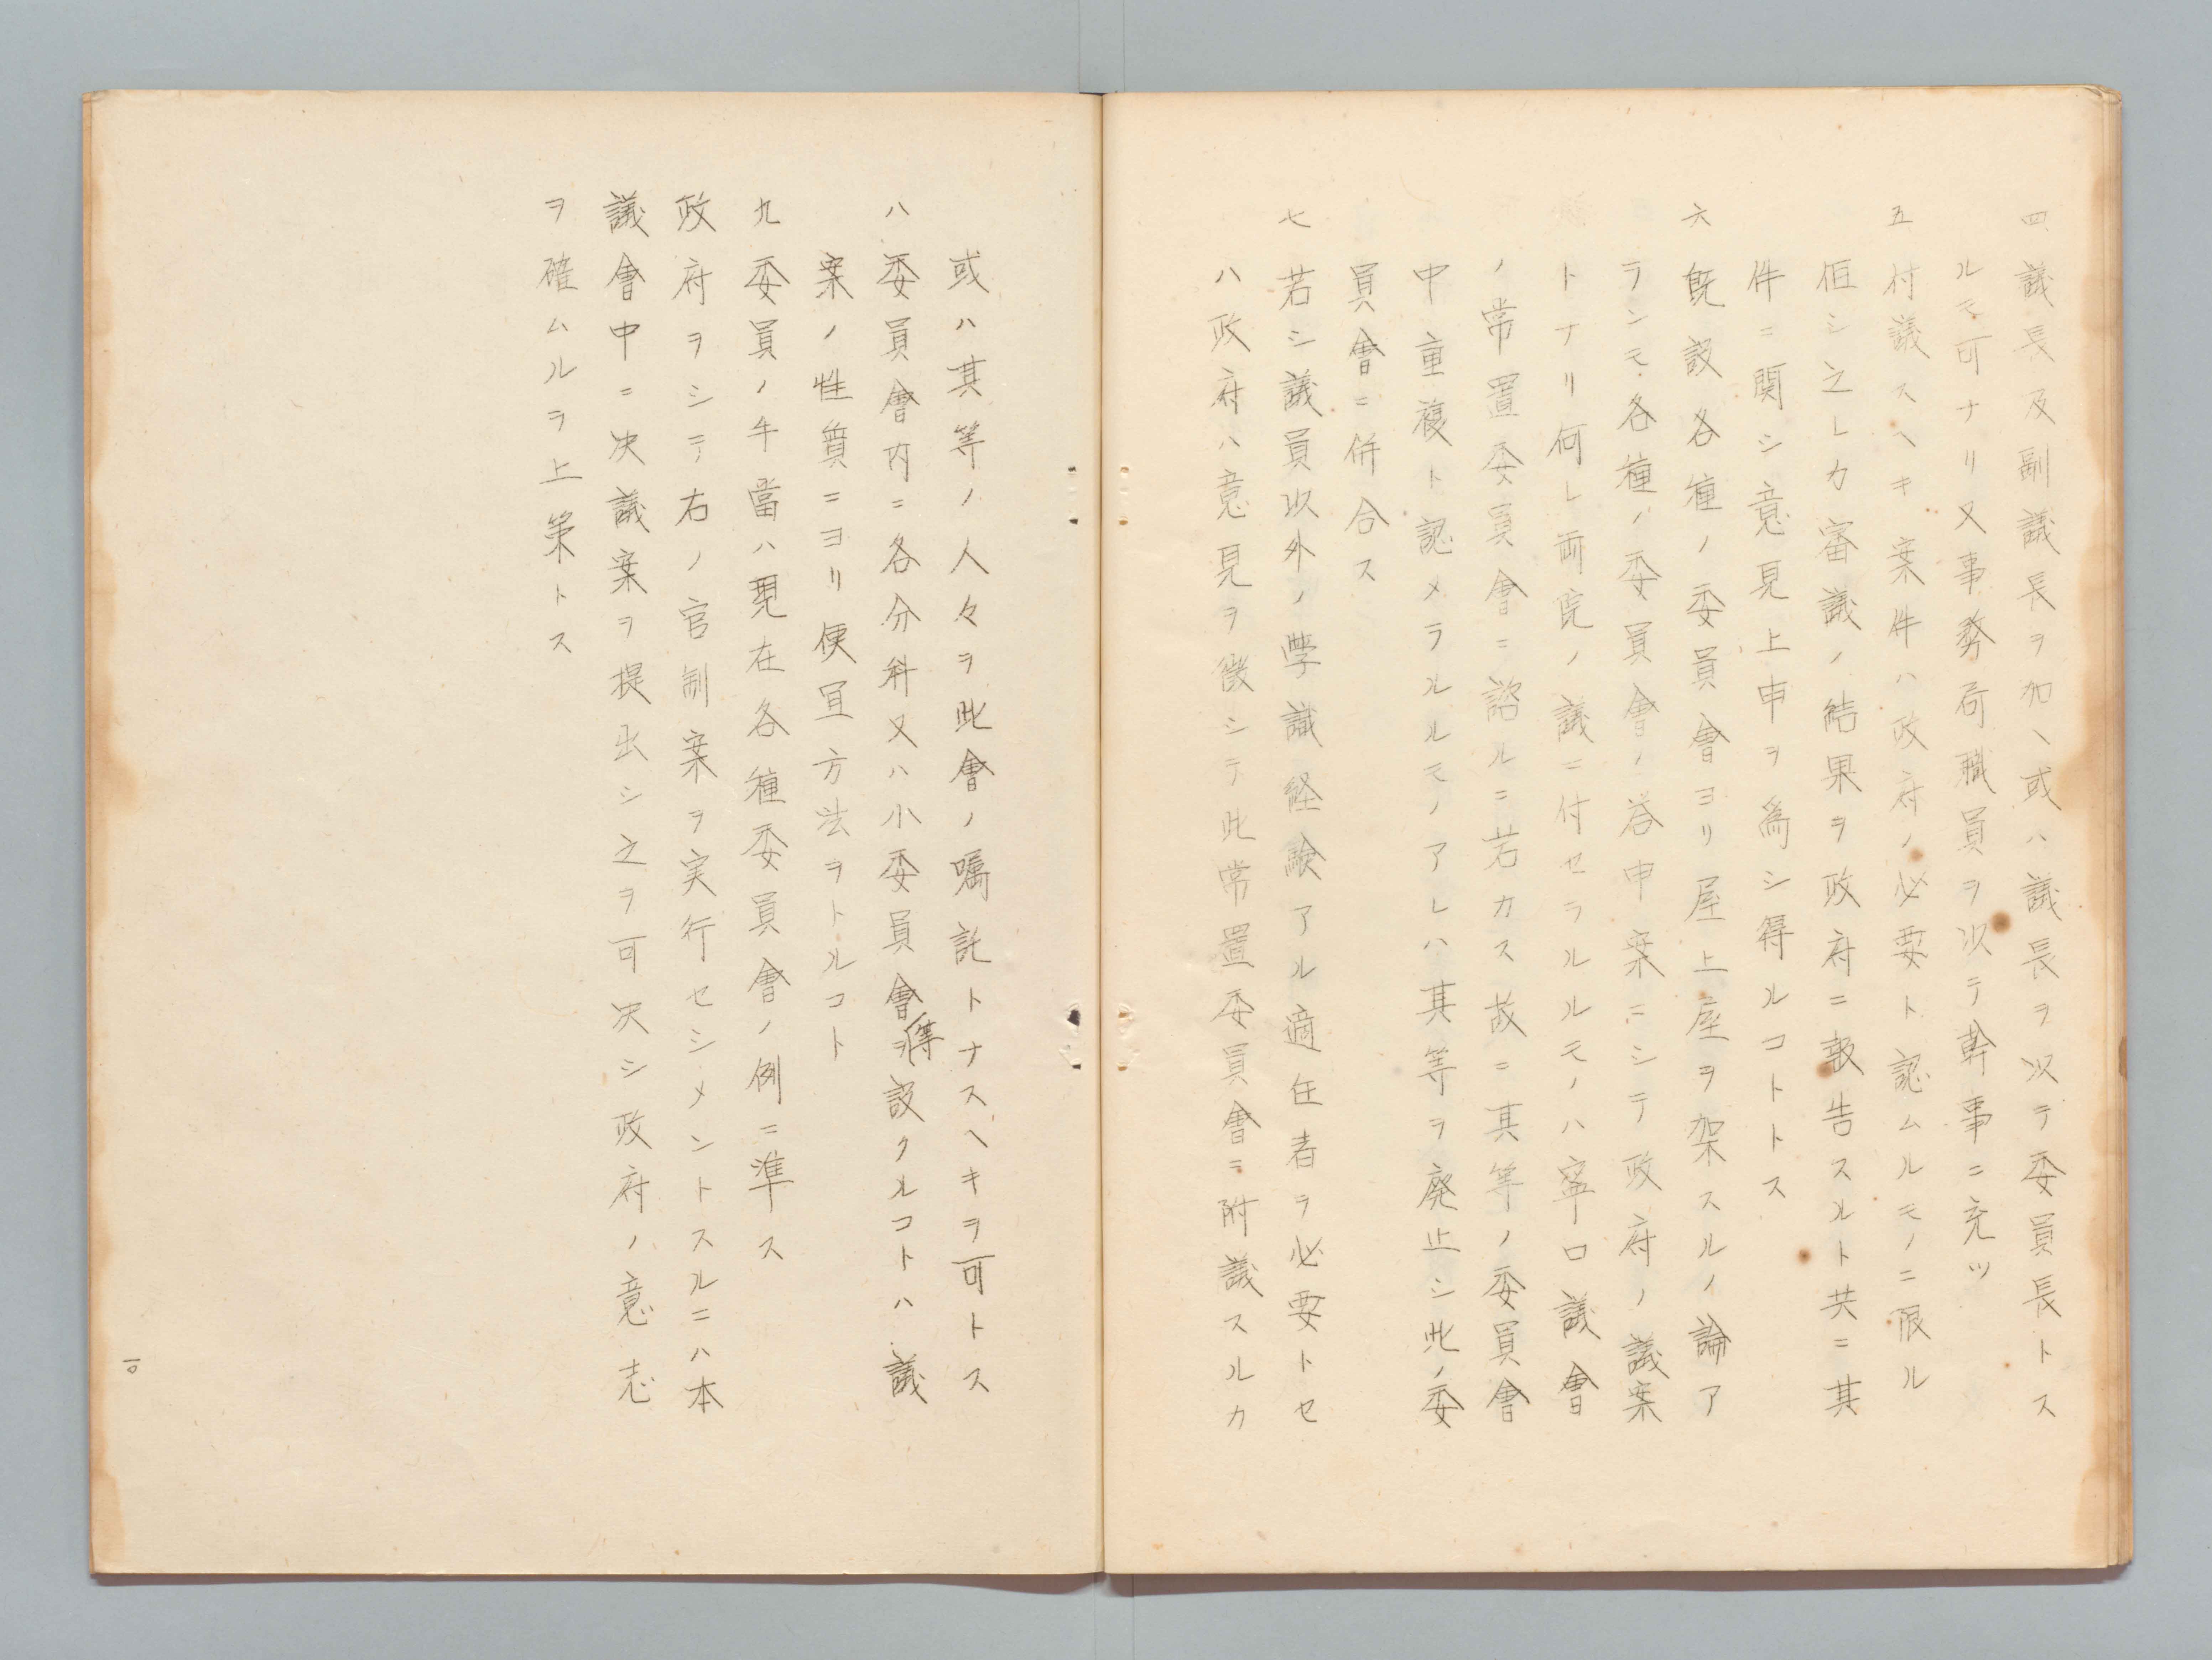 四 議長及副議長ヲ加ヘ或ハ議長ヲ以テ委員長トス
ルモ可ナリ又事務局職員ヲ以テ幹事ニ充ツ
五 付議スヘキ案件ハ政府ノ必要ト認ムルモノニ限ル
但シ之レカ審議ノ結果ヲ政府ニ報告スルト共ニ其
件ニ関シ意見上申ヲ為シ得ルコトトス
六 既設各種ノ委員會ヨリ屋上屋ヲ架スルノ論ア
ランモ各種ノ委員會ノ答申案ニシテ政府ノ議案
トナリ何レ両院ノ議ニ付セラルルモノハ寧ロ議會
ノ常置委員會ニ諮ルニ若カス故ニ其等ノ委員會
中重複ト認メラルルモノアレハ其等ヲ廃止シ此ノ委
員會ニ併合ス
七 若シ議員以外ノ學識経験アル適任者ヲ必要トセ
ハ政府ハ意見ヲ徴シテ此常置委員會ニ附議スルカ
或ハ其等ノ人々ヲ此會ノ嘱託トナスヘキヲ可トス
八 委員會内ニ各分科又ハ小委員會ヲ等設クルコトハ議
案ノ性質ニヨリ便宜方法ヲトルコト
九 委員ノ手當ハ現在各種委員會ノ例ニ準ス
政府ヲシテ右ノ官制案ヲ実行セシメントスルニハ本
議會中ニ決議案ヲ提出シ之ヲ可決シ政府ノ意志
ヲ確ムルヲ上策トス
一〇